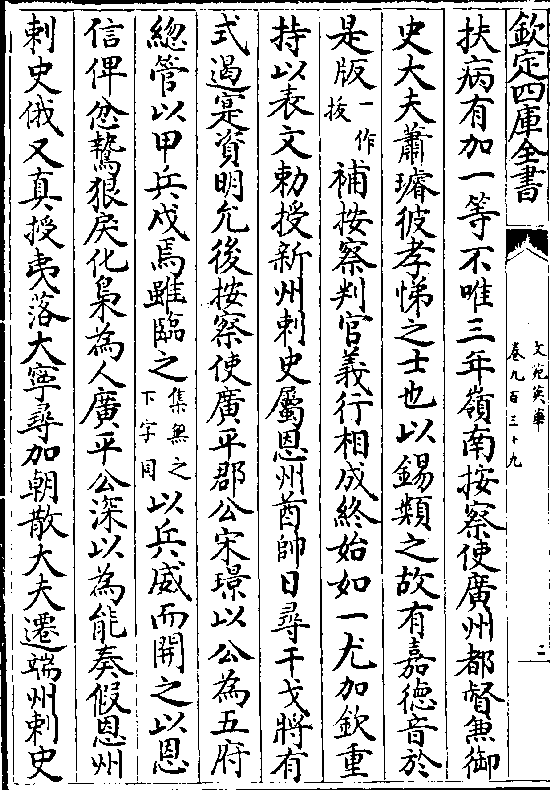 欽定四庫全書
文苑英華
卷九百三十九
二
扶病有加一等不唯三年嶺南按察使廣州都督兼御
史大夫蕭璿彼孝悌之士也以錫類之故有嘉德音於
是版一作扳補按察判官義行相成終始如一尤加欽重
持以表文勅授新州刺史屬恩州酋帥日尋干戈將有
式遏寔資明允後按察使廣平郡公宋璟以公為五府
總管以甲兵戍焉雖臨之集無之下字同以兵威而開之以恩
信俾忿鷙狠戾化梟為人廣平公深以為能奏假恩州
刺史俄又真授夷落大寧尋加朝散大夫遷端州刺史